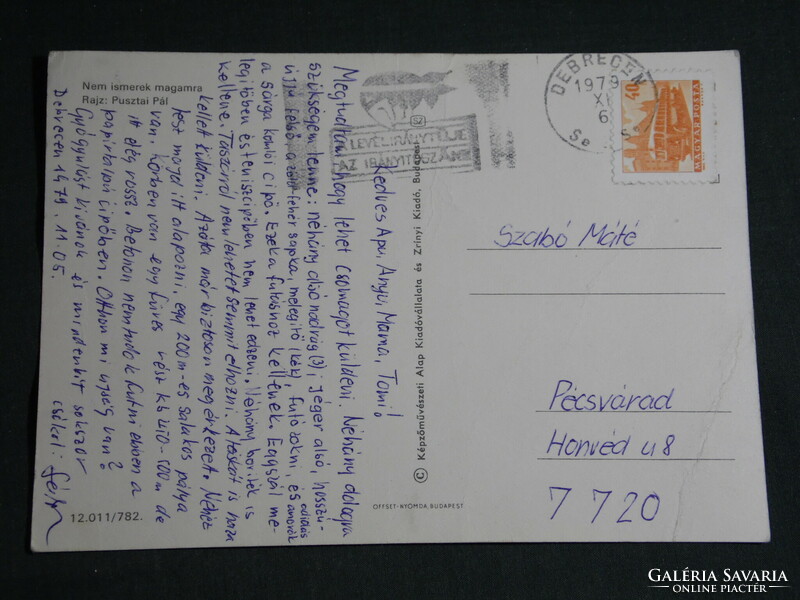 Nem ismerek magamra
Rajz: Pusztai Pál
Kedves Apu, Anyu, Mama, Tomi!
Megtudtam, hogy lehet csomagot küldeni. Néhány dologra
szükségem lenne: néhány alsónadrág (3), Jéger alsó, hosszú-
ujjú felső, a zöld-fehér sapka, melegítő (kék), futózokni, és
a sárga komlói cipő. Ezek a futáshoz kellenek. Egyszál me-
legítőben és teniszcipőben nem lehet edzeni. Néhány boríték is
kellene. Taszárról nem lehetett semmit elhozni. A táskát is haza
kellett küldeni. Azóta már biztosan megérkezett. Nehéz
lesz majd itt alapozni, egy 200 m-es salakos pálya
van. Körben van egy füves rész kb 470-500 m de
itt elég rossz. Betonon nem tudok futni ebben a
papírtalpú cipőben. Otthon mi újság van?
Gyógyulást kívánok és mindenkit sokszor
csókol:
Debrecen 1979. 11. 05.
12.011/782.
© Képzőművészeti Alap Kiadóvállalata és Zrínyi Kiadó, Budapest
OFFSET-NYOMDA, BUDAPEST
A LEVÉL IRÁNYTŰJE
AZ IRÁNYÍTÓSZÁM
DEBRECEN
1979
XI
6
40f
MAGYAR POSTA
Szabó Máté
Pécsvárad
Honvéd u 8
7720
GALÉRIA SAVARIA
ONLINE PIACTÉR